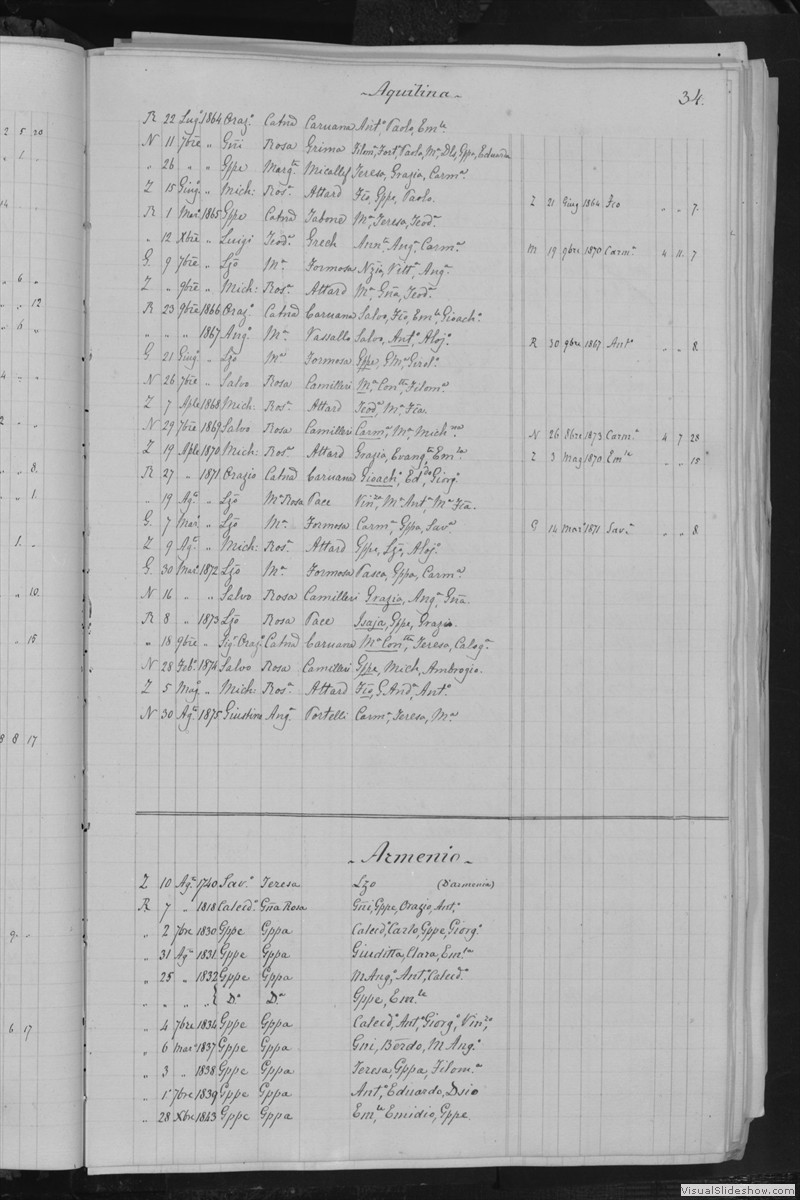 - Aquilina -
34.
R 22 Lug.o 1864 Oraz.o Catnã Caruana Ant.o, Paolo, Em.le
N 11 7bre " Gñi Rosa Grima Filom.a, Fort.o, Paolo, M.a, Dls, Gppa, Eduarda
" 26 " " Gppe Marg.ta Micallef Teresa, Grazia, Carm.a
Z 15 Giug.o " Mich: Ros.a Attard Fco, Gppe, Paolo. Z 21 Giug 1864 Fco " " 7.
R 1 Mar.o 1865 Gppe Catnã Tabone M.a, Teresa, Teod.a
" 12 Xbre " Luigi Teod.a Grech Ann.ta, Ang.a, Carm.a M 19 9bre 1870 Carm.a 4 11 7
G 9 7bre " Lzo M.a Formosa Nzia, Vitt.a, Ang.a
Z " 9bre " Mich: Ros.a Attard M.a, Gña, Teod.a
R 23 9bre 1866 Oraz.o Catnã Caruana Salvo, Fco, Em.le, Gioach.o
" " " 1867 Ang.o M.a Vassallo Salvo, Ant.o, Aloj.o R 30 9bre 1867 Ant.o " " 8.
G 21 Giug.o " Lzo M.a Formosa Gppe, G M.a, Girol.o
N 26 7bre " Salvo Rosa Camilleri M.a Con.tta, Filom.a
Z 7 Aple 1868 Mich. Ros.a Attard Teod.a, M.a, Fca.
N 29 7bre 1869 Salvo Rosa Camilleri Carm.a, M.a, Mich.na N 26 8bre 1873 Carm.a 4 7 28
Z 19 Aple 1870 Mich: Ros.a Attard Grazia, Evang.ta, Em.la Z 3 Mag 1870 Em.la " " 15
R 27 " 1871 Orazio Catnã Caruana Gioach.o, Ed.do, Giorg.o
" 19 Ag.o " Lzo M.a Rosa Pace Vin.za, M.a Ant.a, M.a Fca.
G. 7 Mar.o " Lzo M.a Formosa Carm.a, Gppa, Sav.a G 14 Mar.o 1871 Sav.a " " 8
Z 9 Ag.o " Mich: Ros.a Attard Gppe, Lzo, Aloj.o
G. 30 Mar.o 1872 Lzo M.a Formosa Pasca, Gppa, Carm.a
N 16 " " Salvo Rosa Camilleri Grazia, Ang.a, Gña.
R 8 " 1873 Lzo Rosa Pace Isaja, Gppe, Grazio.
" 18 9bre " Sig.r Oraz.o Catnã Caruana M.a Con.tta, Teresa, Calog.a
N 28 Feb.o 1874 Salvo Rosa Camilleri Gppe, Mich, Ambrogio.
Z 5 Mag " Mich Ros.a Attard Fco, G. And.a, Ant.o
N 30 Ag.o 1875 Giustino Ang.a Portelli Carm.a, Teresa, M.a
- Armenio -
Z 10 Ag.o 1740 Sav.o Teresa Lzo (D'armenia)
R 7 " 1818 Calced.o Gña Rosa Gñi, Gppe, Orazio, Ant.o
" 2 7bre 1830 Gppe Gppa Calced.o, Carlo, Gppe, Giorg.o
" 31 Ag.o 1831 Gppe Gppa Giuditta, Clara, Em.la
" 25 " 1832 Gppe Gppa M Ang.o, Ant.o, Calced.o
" " " " { D.o D.a Gppe, Em.le
" 4 7bre 1834 Gppe Gppa Calced.a, Ant.a, Giorg.a, Vin.za
" 6 Mar.o 1837 Gppe Gppa Gni, Bẽrdo, M Ang.o
" 3 " 1838 Gppe Gppa Teresa, Gppa, Filom.a
" 1º 7bre 1839 Gppe Gppa Ant.o, Eduardo, Dsio
" 28 Xbre 1843 Gppe Gppa Em.le, Emidio, Gppe
VisualSlideshow.com